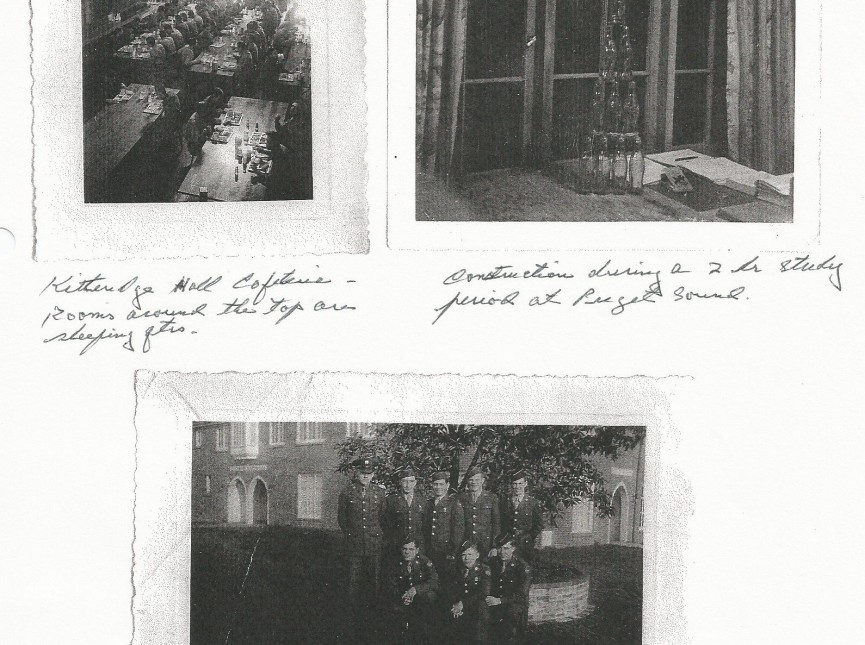 Kitheridge Hall Cafeteria –
Rooms around the top are
sleeping qtrs.
Construction during a 2 hr study
period at Puget Sound.